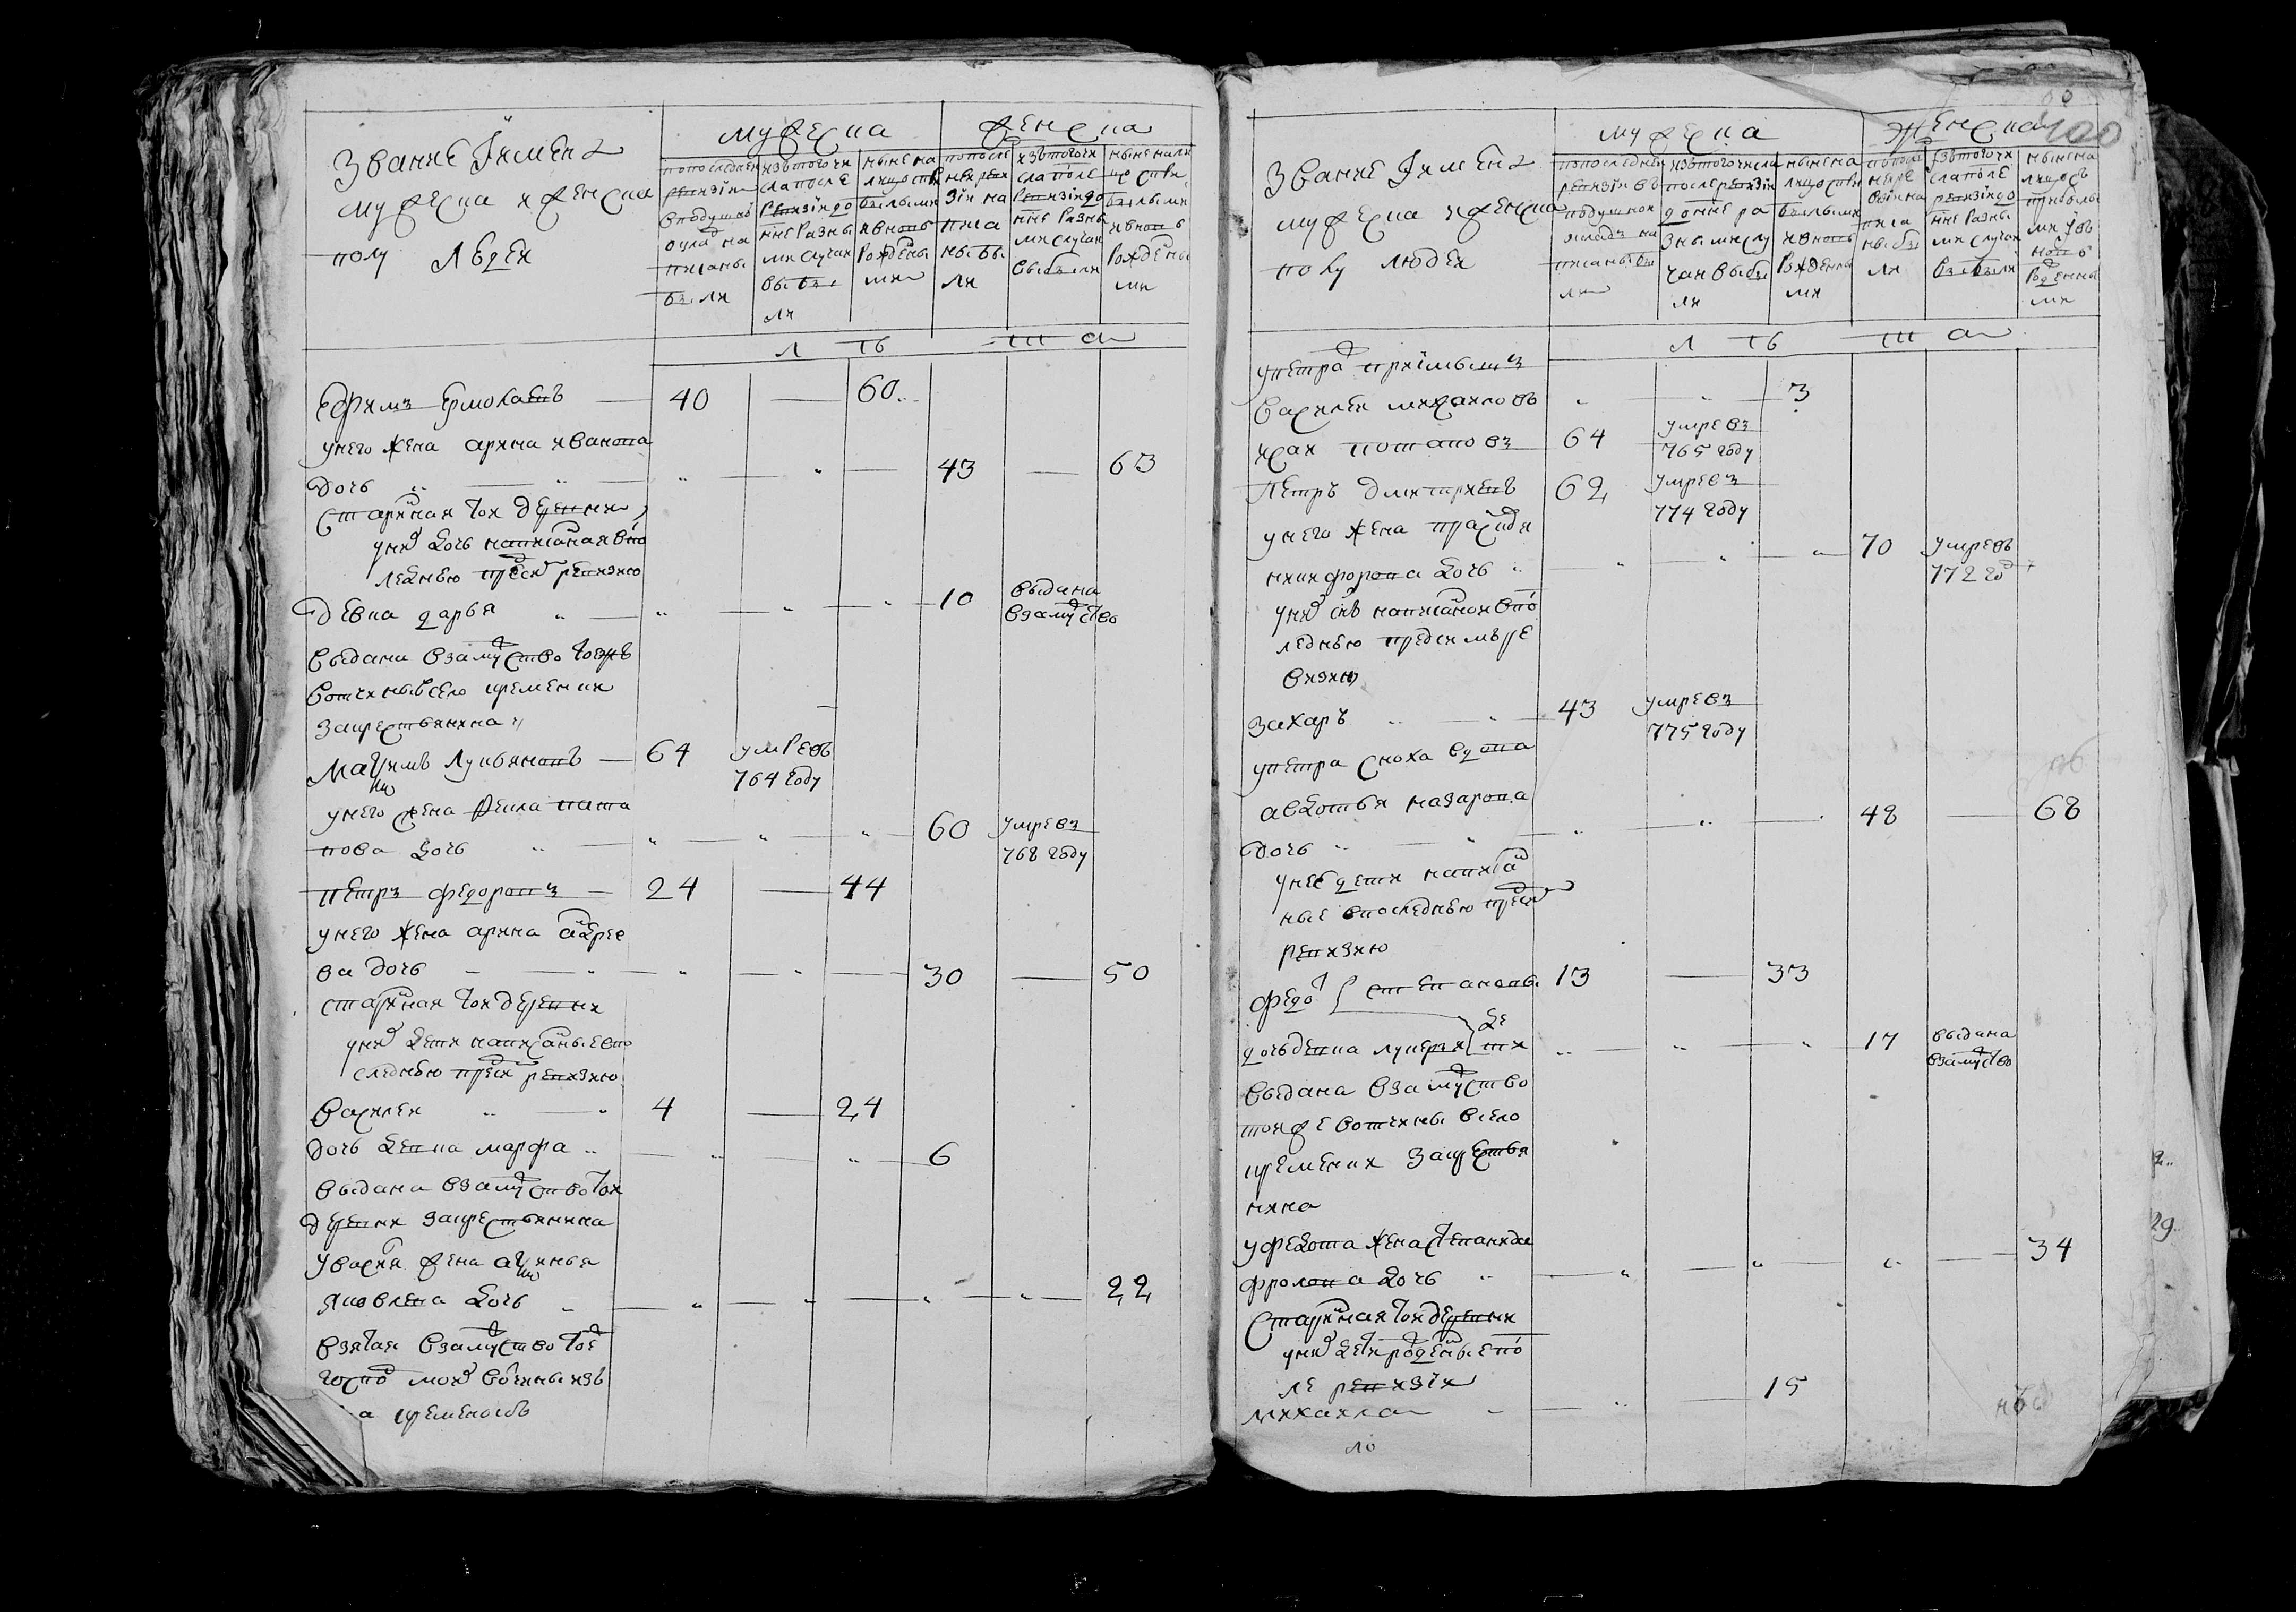 Звание Ӏимена
мужеска и женска
полу людей
мужеска
женска
попоследней ревизии в подушной оклад написаны были
изтого числа после ревизии до ныне разными случаи выбыли
ныне налицо с прибылыми и вновь рожденными
попоследней ревизии написаны были
изтого числа после ревизии до ныне разными случаи выбыли
ныне налицо с прибылыми и вновь рожденными
лѣта
Ефимъ Ермолаевъ 40 — 60
унего жена арина иванова
дочь 43 — 63
старинная той деревни
уних дочь написаная впо
леднею пред сим ревизию
девка дарья 10 выдана
взамужство
выдана взамужство тоежъ
вотчины в село кременки
за крестьянина
Максимъ Лукьяновъ — 64 умре въ
764 году
унего жена Фекла пота
пова дочь 60 умре въ
768 году
петръ федоровъ — 24 — 44
унего жена арина андрее
ва дочь 30 — 50
старинная той деревни
уних дети написаные впо
следнею пред сим ревизию
василей 4 — 24
дочь девка марфа 6
выдана взамужство той
деревни за крестьянина
у василя жена аксинья
яковлева дочь 22
взятая взамужство тое
господ моих вотчины изъ
а кременокъ
100
Звание Ӏимена
мужеска и женска
полу людей
мужеска
женска
попоследней ревизии въ подушной окладъ написаны были
изтого числа после ревизии до ныне разными случаи выбыли
ныне налицо с прибылыми и вновь рожденными
попоследней ревизии написаны были
изтого числа после ревизии до ныне разными случаи выбыли
ныне налицо съ прибылыми и вновь рожденными
лѣта
упетра приимышъ
василей михаиловъ 3
исаи потаповъ 64 умре въ
765 году
Петръ дмитриевъ 62 умре въ
774 году
унего жена прасковя
никифорова дочь 70 умре въ
772 год
уних сын написаной впо
леднею пред симъ ре
визию
захаръ 43 умре въ
775 году
упетра сноха вдова
авдотья назарова
дочь 48 — 68
унее дети написа
ные впоследнею пред сим
ревизию
федот степановы 13 — 33
дочь девка лукерья де
ти 17 выдана
взамужство
выдана взамужство
тояже вотчины в село
кременки за крестья
нина
уфедота жена степанида
фролова дочь 34
старинная той деревни
уних дети рожденые по
ле ревизии
михаила 15
ло